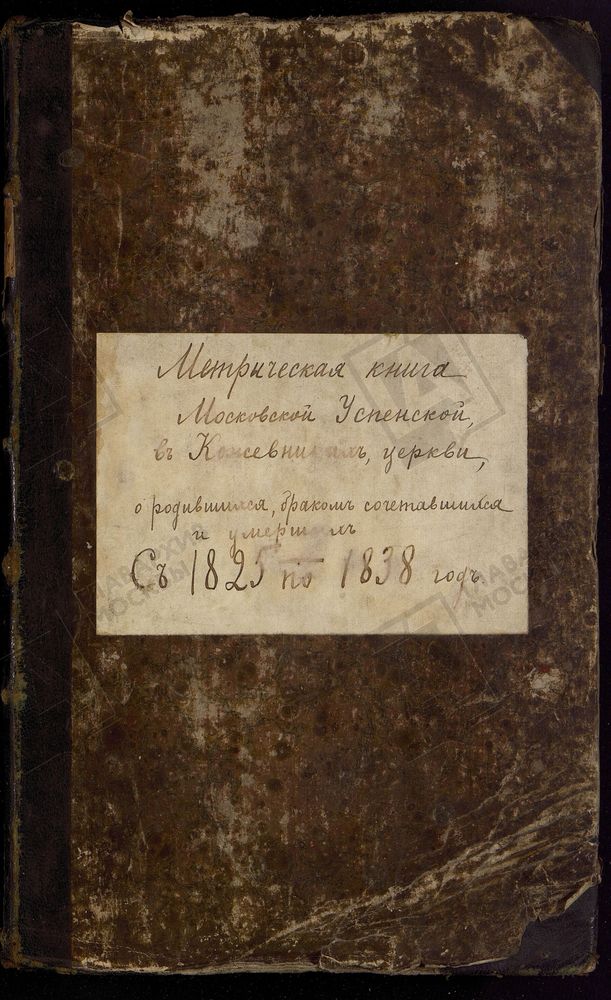 Метрическая книга
Московской Успенской,
въ Кожевникахъ, церкви,
о родившихся, бракомъ сочетавшихся
и умершихъ
Съ 1825 по 1838 годъ.
ГЛАВАРХИВ
МОСКВЫ